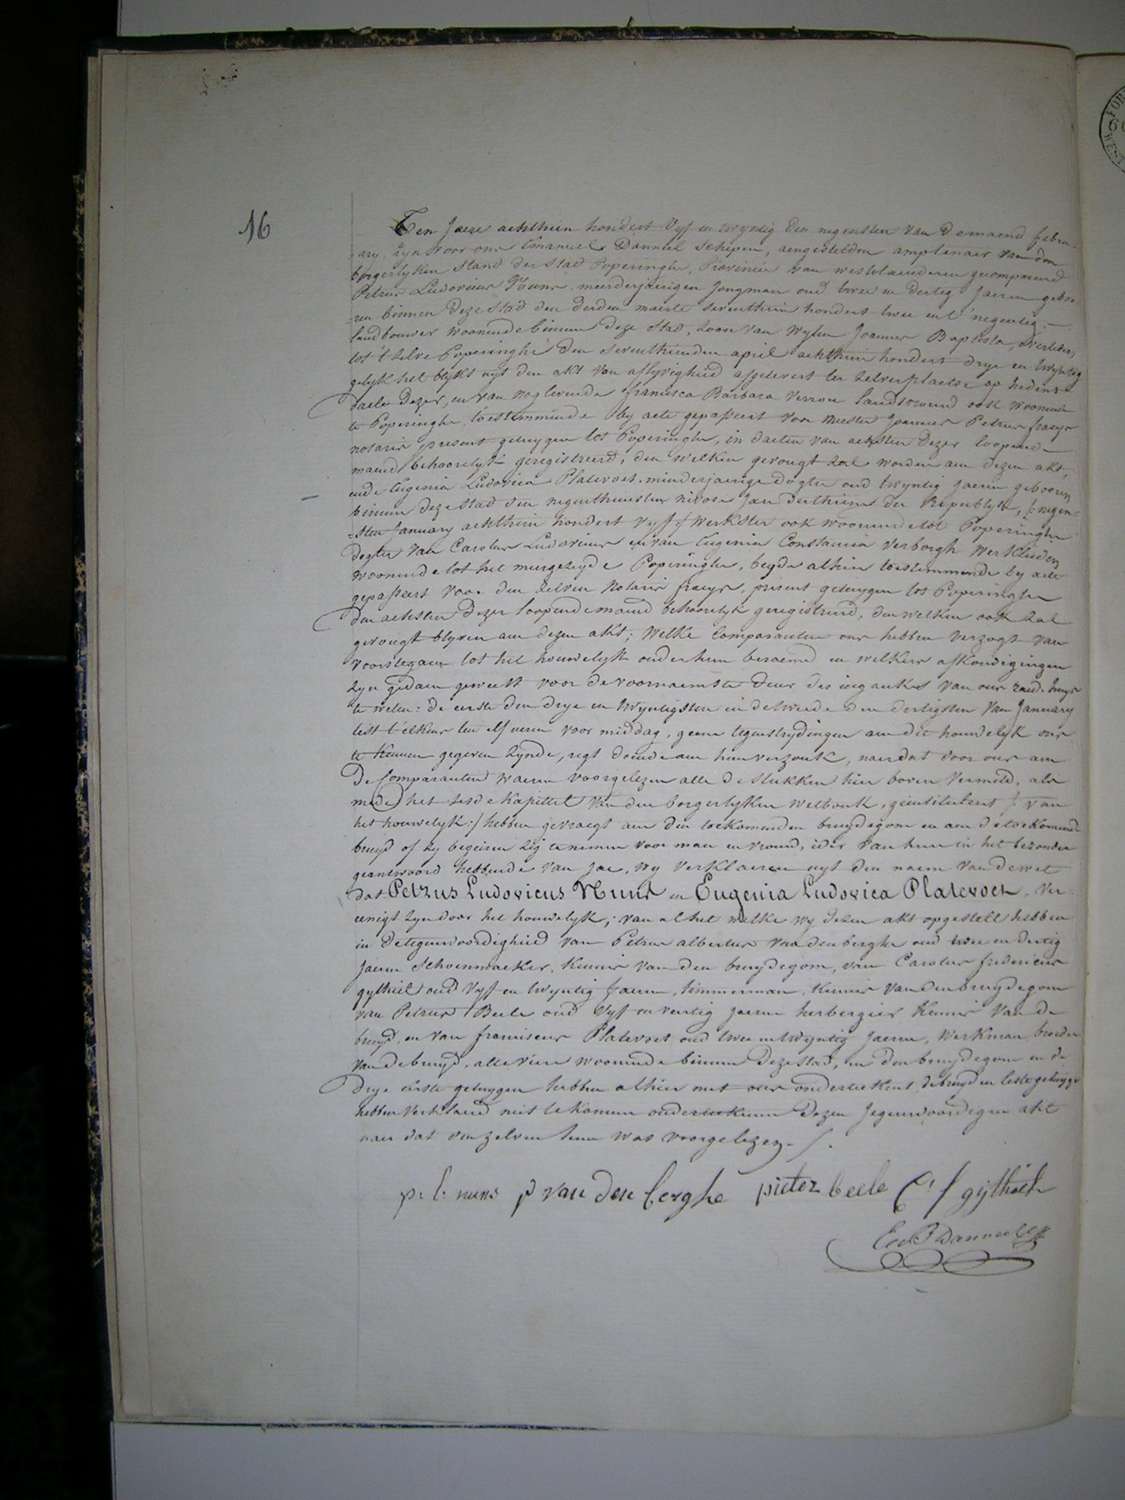 16
Ten Jaere achthien hondert Vyf en twyntig den negensten van de maend febru-
ary, Zyn voor ons Emanuel Danneel schepen, aengestelden amptenaer van den
borgerlyken Stand der Stad Poperinghe, Provincie van westvlaenderen gecompareerd
Petrus Ludovicus Nuns meerderjarigen Jongman oud twee en dertig Jaeren gebo-
ren binnen deze Stad den derden maerte seventhien hondert twee en t'negentig,
landbouwer woonende binnen deze Stad, zoon van wylen Joannes Baptista, overleden
tot t'zelve Poperinghe den seventhienden april achthien hondert drye en twyntig
gelyk het blykt uyt den akt van aflyvigheid afgelevert ter zelver plaetse op heden
daete dezer, en van nog levende francisca Barbara verron landbouwerig ook woonende
te Poperinghe, toestemmende by acte gepasseert voor meester Joannes Petrus
notaris present getuygen tot Poperinghe, in daeten van achsten dezer loopende
maend behoorelyk geregistreerd, den welken gevougt zal worden aen dezen akt
ende Eugenia Ludovica Platevoet minderjaerige dogter oud twyntig Jaeren gebooren
binnen deze Stad den negenthiensten nivose Jaer derthiene der Republyk,
sten January achthien hondert vyf Werkster ook woonende tot Poperinghe
dogter van Carolus Ludovicus en van Eugenia Constancia Verborgh Werklieden
woonende tot het meergezeyde Poperinghe, beyde alhier toestemmende by acte
gepasseert voor den zelven Notaris present getuygen tot Poperinghe
den achsten dezer loopende maend behoorelyk geregistreerd, den welken ook zal
gevougt blyven aen dezen akt; Welke Comparanten ons hebben verzogt van
voorstegaen tot het houwelyk onder hun beraemd en welkers afkondigingen
zyn gedaen geweest voor de voornaemste deur des ingankt van ons raed-huys
te weten: de eerste den drye en twyntigsten en de tweede den dertigsten van January
lest t'elkens ten elf uren voor middag, geene tegenstrydingen aen dit houwelyk ons
te kennen gegeven zynde, regt doende aen hun verzoek, naer dat voor ons aen
De Comparanten waeren voorgelezen alle de stukken hier boven vermeld, als
mede het sesde kapittel van den borgerlyken wetbouk, geintituleert /: van
het houwelyk:/ hebben gevraegt aen den toekomenden bruydegom en aen de toekomende
bruyd of zy begeiren zig te nemen voor man en vrouw, ider van hun in het bezonder
geantwoord hebbende van jae, wy verklaeren uyt den naem van de wet
dat Petrus Ludovicus Nuns en Eugenia Ludovica Platevoet, ver-
eenigt zyn door het houwelyk; van al het welke wy dezen akt opgestelt hebben
in de tegenwoordigheid van Petrus albertus vanden berghe oud twee en dertig
Jaeren Schoenmaeker, kennis van den bruydegom, van Carolus fredericus
gythiel oud vyf en twyntig Jaeren, timmerman, kennis van den bruydegom
van Petrus Beele oud vyf en veertig jaeren herbergier kennis van de
bruyd, en van franciscus Platevoet oud twee en twyntig Jaeren, werkman, broeder
van de bruyd, alle viere woonende binnen deze stad, en den bruydegom en de
drye eerste getuygen hebben alhier met ons onderteekent, de bruyd en leste getuyge
hebben verklaerd niet te konnen onderteekenen dezen Jegenwoordigen akt
naer dat den zelven hun was voorgelezen.
p. l. nuns p van den berghe pieter beele C f gijthiel
Danneel